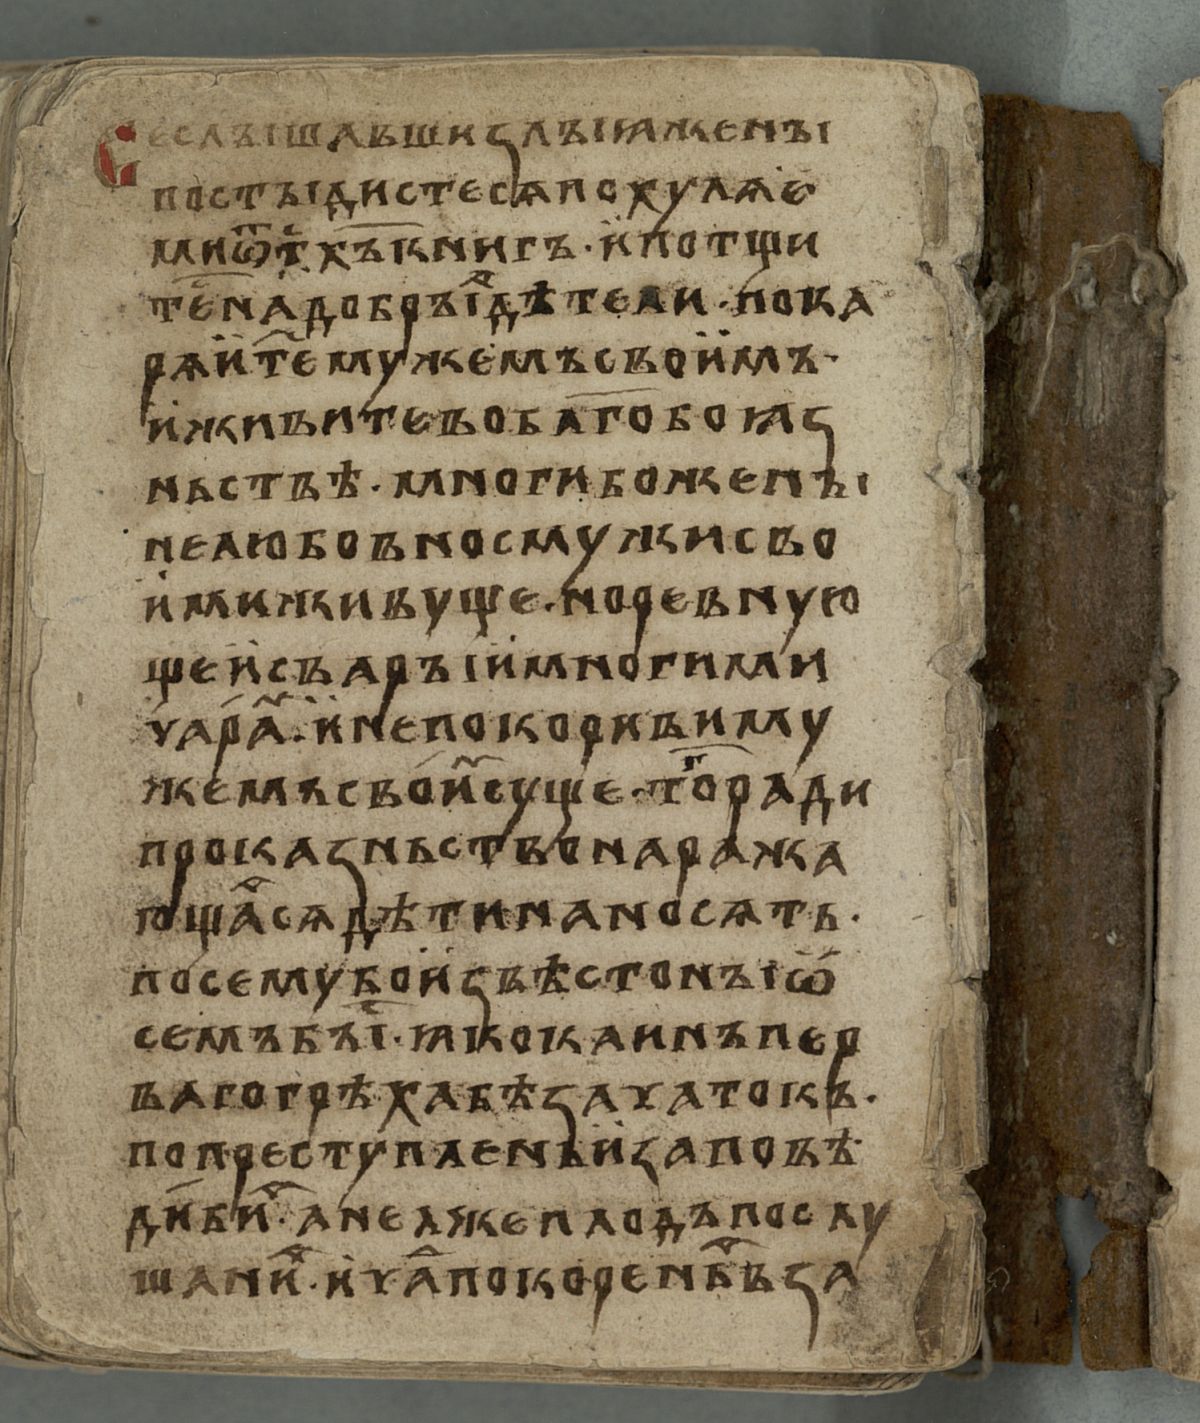 Се слꙑшавши ꙁлꙑꙗ женꙑ
постꙑдистесѧ похулѧе
ми ѿ тⷯхъ книгъ · и҆ потщи
теⷭ҇ на добрꙑⷶ дѣтели · пока
рѧи҆ те мужемъ свои҆мъ ·
и҆ живите во бл҃гобоꙗꙁ
ньствѣ · многи бо женꙑ
нелюбовно с мужи сво
и҆ми живуще · но ревную
ще и҆ сварꙑ и҆ многими
чарⷨа · и҆ непокориви му
жемъ свои҆ⷨ суще · тоⷢ҇ ради
проказньство нараж̾а
ющаⷶсѧ дѣти наносѧть ·
по сему бо и҆звѣсто нꙑ ѿ
семъ бꙑⷭ҇ · ꙗко каинъ пер
ваго грѣха бѣ зачатокъ ·
по преступленьи҆ заповѣ
ди҆ биⷧ · а не ꙗже плодъ послу
шаниⷶ · и҆ чаⷣ покореньⷶ въ за